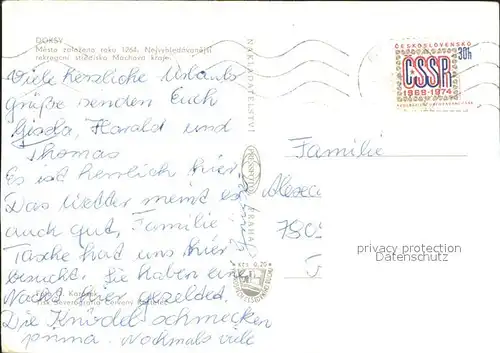 DOKSY
Město založeno roku 1264. Nejvyhledávanější
rekreační středisko Máchova kraje
Viele herzliche Urlaubs
grüße senden Euch
Gisela, Harald und
Thomas
Es ist herrlich hier.
Das Wetter meint es
auch gut. Familie
Tasche hat uns hier
besucht. Sie haben eine
Nacht hier gezelded.
Die Knödel schmecken
prima. Nochmals viele
Grüße
NAKLADATELSTVÍ
PRESSFOTO
PRAHA
Kčs 0,20
Severografia Červený Kostelec
ČESKOSLOVENSKO
30h
ČSSR
1969-1974
Familie
privacy protection
Datenschutz